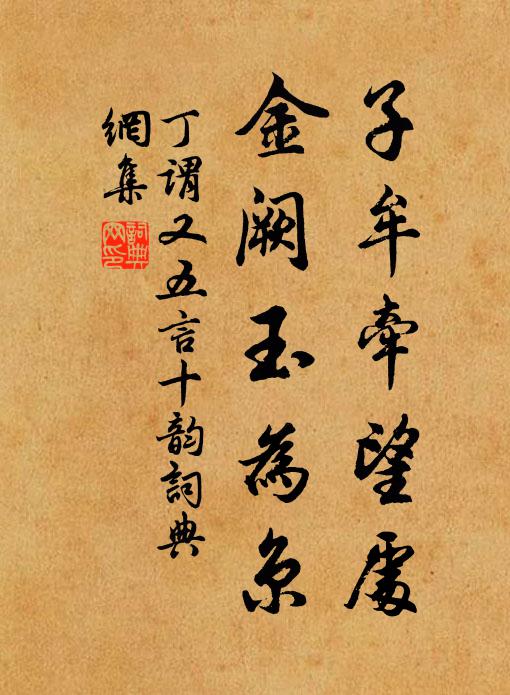 子牟牽望處
金闕玉為京
丁謂又五言十韵詞典
網集
詞典網印